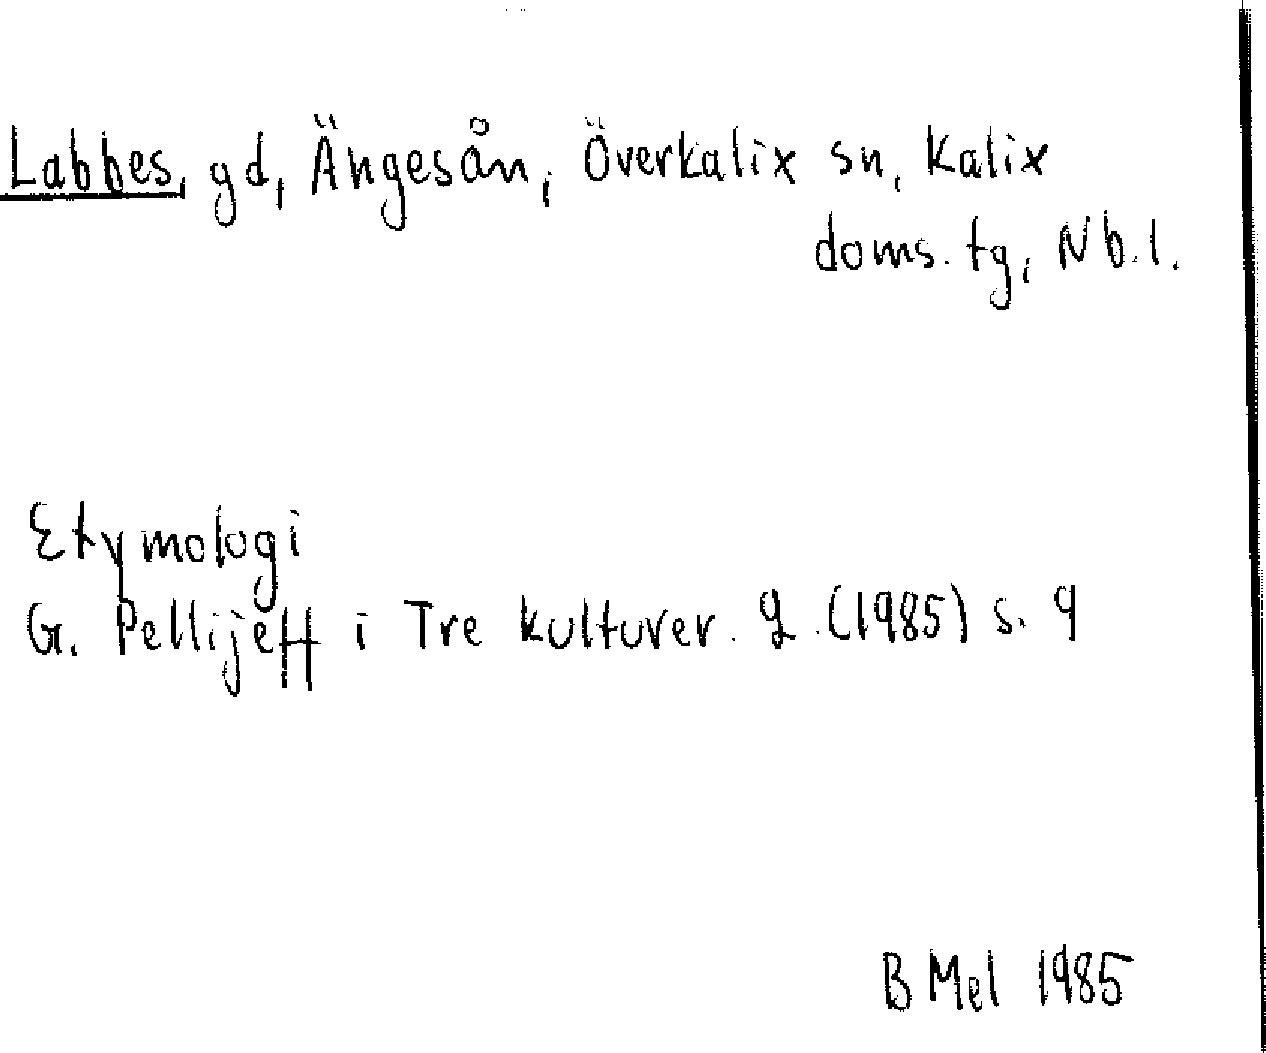 Labbes, gd, Ängesån, Överkalix sn, Kalix
doms. tg, Nb. l.
Etymologi
G. Pellijeff i Tre kulturer. 2 (1985) s. 9
B Mel 1985